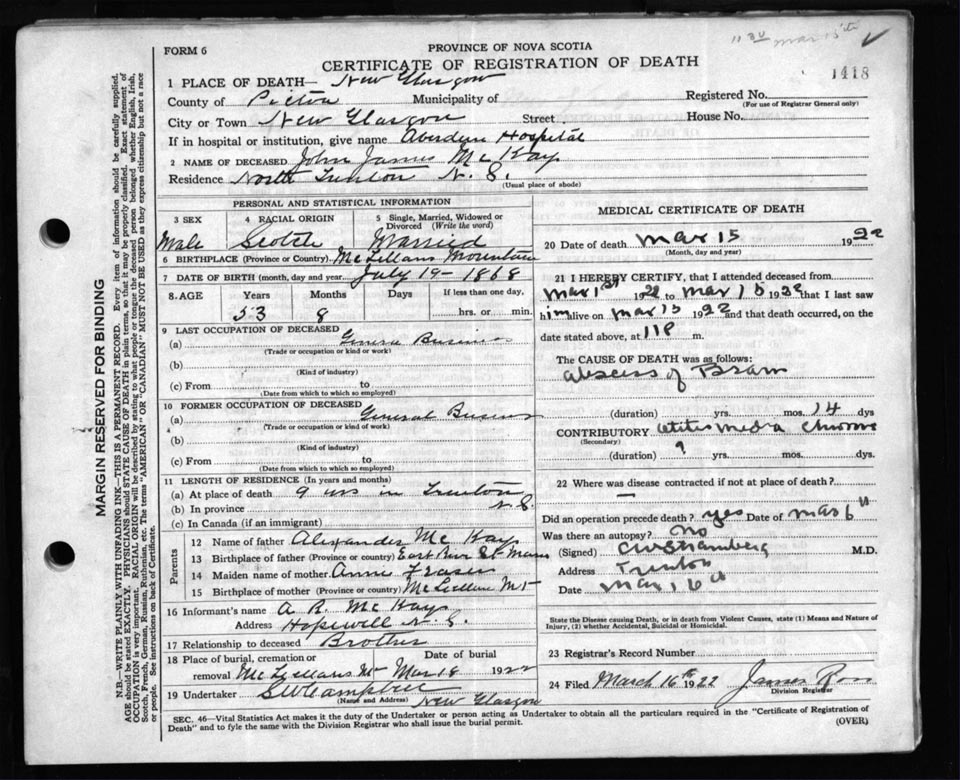 11 30 Mar 15th ✓
FORM 6
PROVINCE OF NOVA SCOTIA
CERTIFICATE OF REGISTRATION OF DEATH
1418
1 PLACE OF DEATH— New Glasgow
County of Pictou Municipality of Registered No.
(For use of Registrar General only)
City or Town New Glasgow Street House No.
If in hospital or institution, give name Aberdeen Hospital
2 NAME OF DECEASED John James McKay
Residence North Trenton N.S.
(Usual place of abode)
PERSONAL AND STATISTICAL INFORMATION
3 SEX 4 RACIAL ORIGIN 5 Single, Married, Widowed or Divorced (Write the word)
Male Scotch Married
6 BIRTHPLACE (Province or Country) McLellans Mountain
7 DATE OF BIRTH (month, day and year) July 19-1868
8. AGE Years Months Days If less than one day,
53 8 hrs. or min.
9 LAST OCCUPATION OF DECEASED
(a) General Business
(Trade or occupation or kind or work)
(b)
(Kind of industry)
(c) From to
(Date from which to which so employed)
10 FORMER OCCUPATION OF DECEASED
(a) General Business
(Trade or occupation or kind of work)
(b)
(Kind of industry)
(c) From to
(Date from which to which so employed)
11 LENGTH OF RESIDENCE (In years and months)
(a) At place of death 9 yrs in Trenton
(b) In province N.S.
(c) In Canada (if an immigrant)
Parents
12 Name of father Alexander McKay
13 Birthplace of father (Province or country) East River St Marys
14 Maiden name of mother Annie Fraser
15 Birthplace of mother (Province or country) McLellans Mt
16 Informant's name A. R. McKay
Address Hopewell N.S.
17 Relationship to deceased Brother
18 Place of burial, cremation or removal Date of burial
McLellans Mt Mar 18 1922
19 Undertaker S W Campbell
(Name and Address) New Glasgow
MEDICAL CERTIFICATE OF DEATH
20 Date of death Mar 15 1922
(Month, day and year)
21 I HEREBY CERTIFY, that I attended deceased from
Mar 1st 1922 to Mar 15 1922 that I last saw
him alive on Mar 15 1922 and that death occurred, on
date stated above, at 11 P m.
The CAUSE OF DEATH was as follows:
Abscess of Brain
(duration) yrs. mos. 14 dys
CONTRIBUTORY Otitis Media Chronic
(Secondary)
(duration) ? yrs. mos. dys.
22 Where was disease contracted if not at place of death?
—
Did an operation precede death? yes Date of Mar 6
Was there an autopsy? No
(Signed) M.D.
Address Trenton
Date Mar 16
State the Disease causing Death, or in death from Violent Causes, state (1) Means and Nature of
Injury, (2) whether Accidental, Suicidal or Homicidal.
23 Registrar's Record Number
24 Filed March 16th 1922 James Ross
Division Registrar
SEC. 46—Vital Statistics Act makes it the duty of the Undertaker or person acting as Undertaker to obtain all the particulars required in the "Certificate of Registration of
Death" and to fyle the same with the Division Registrar who shall issue the burial permit. (OVER)
MARGIN RESERVED FOR BINDING
N.B.—WRITE PLAINLY WITH UNFADING INK—THIS IS A PERMANENT RECORD. Every item of information should be carefully supplied.
AGE should be stated EXACTLY. PHYSICIANS should STATE CAUSE OF DEATH in plain terms, so that it may be properly classified. Exact statement of
OCCUPATION is very important. RACIAL ORIGIN will be described by stating to what people or tongue the deceased person belonged whether English, Irish,
Scotch, French, German, Russian, Ruthenian, etc. The terms "AMERICAN" OR "CANADIAN" MUST NOT BE USED as they express citizenship but not a race
or people. See instructions on back of Certificate.